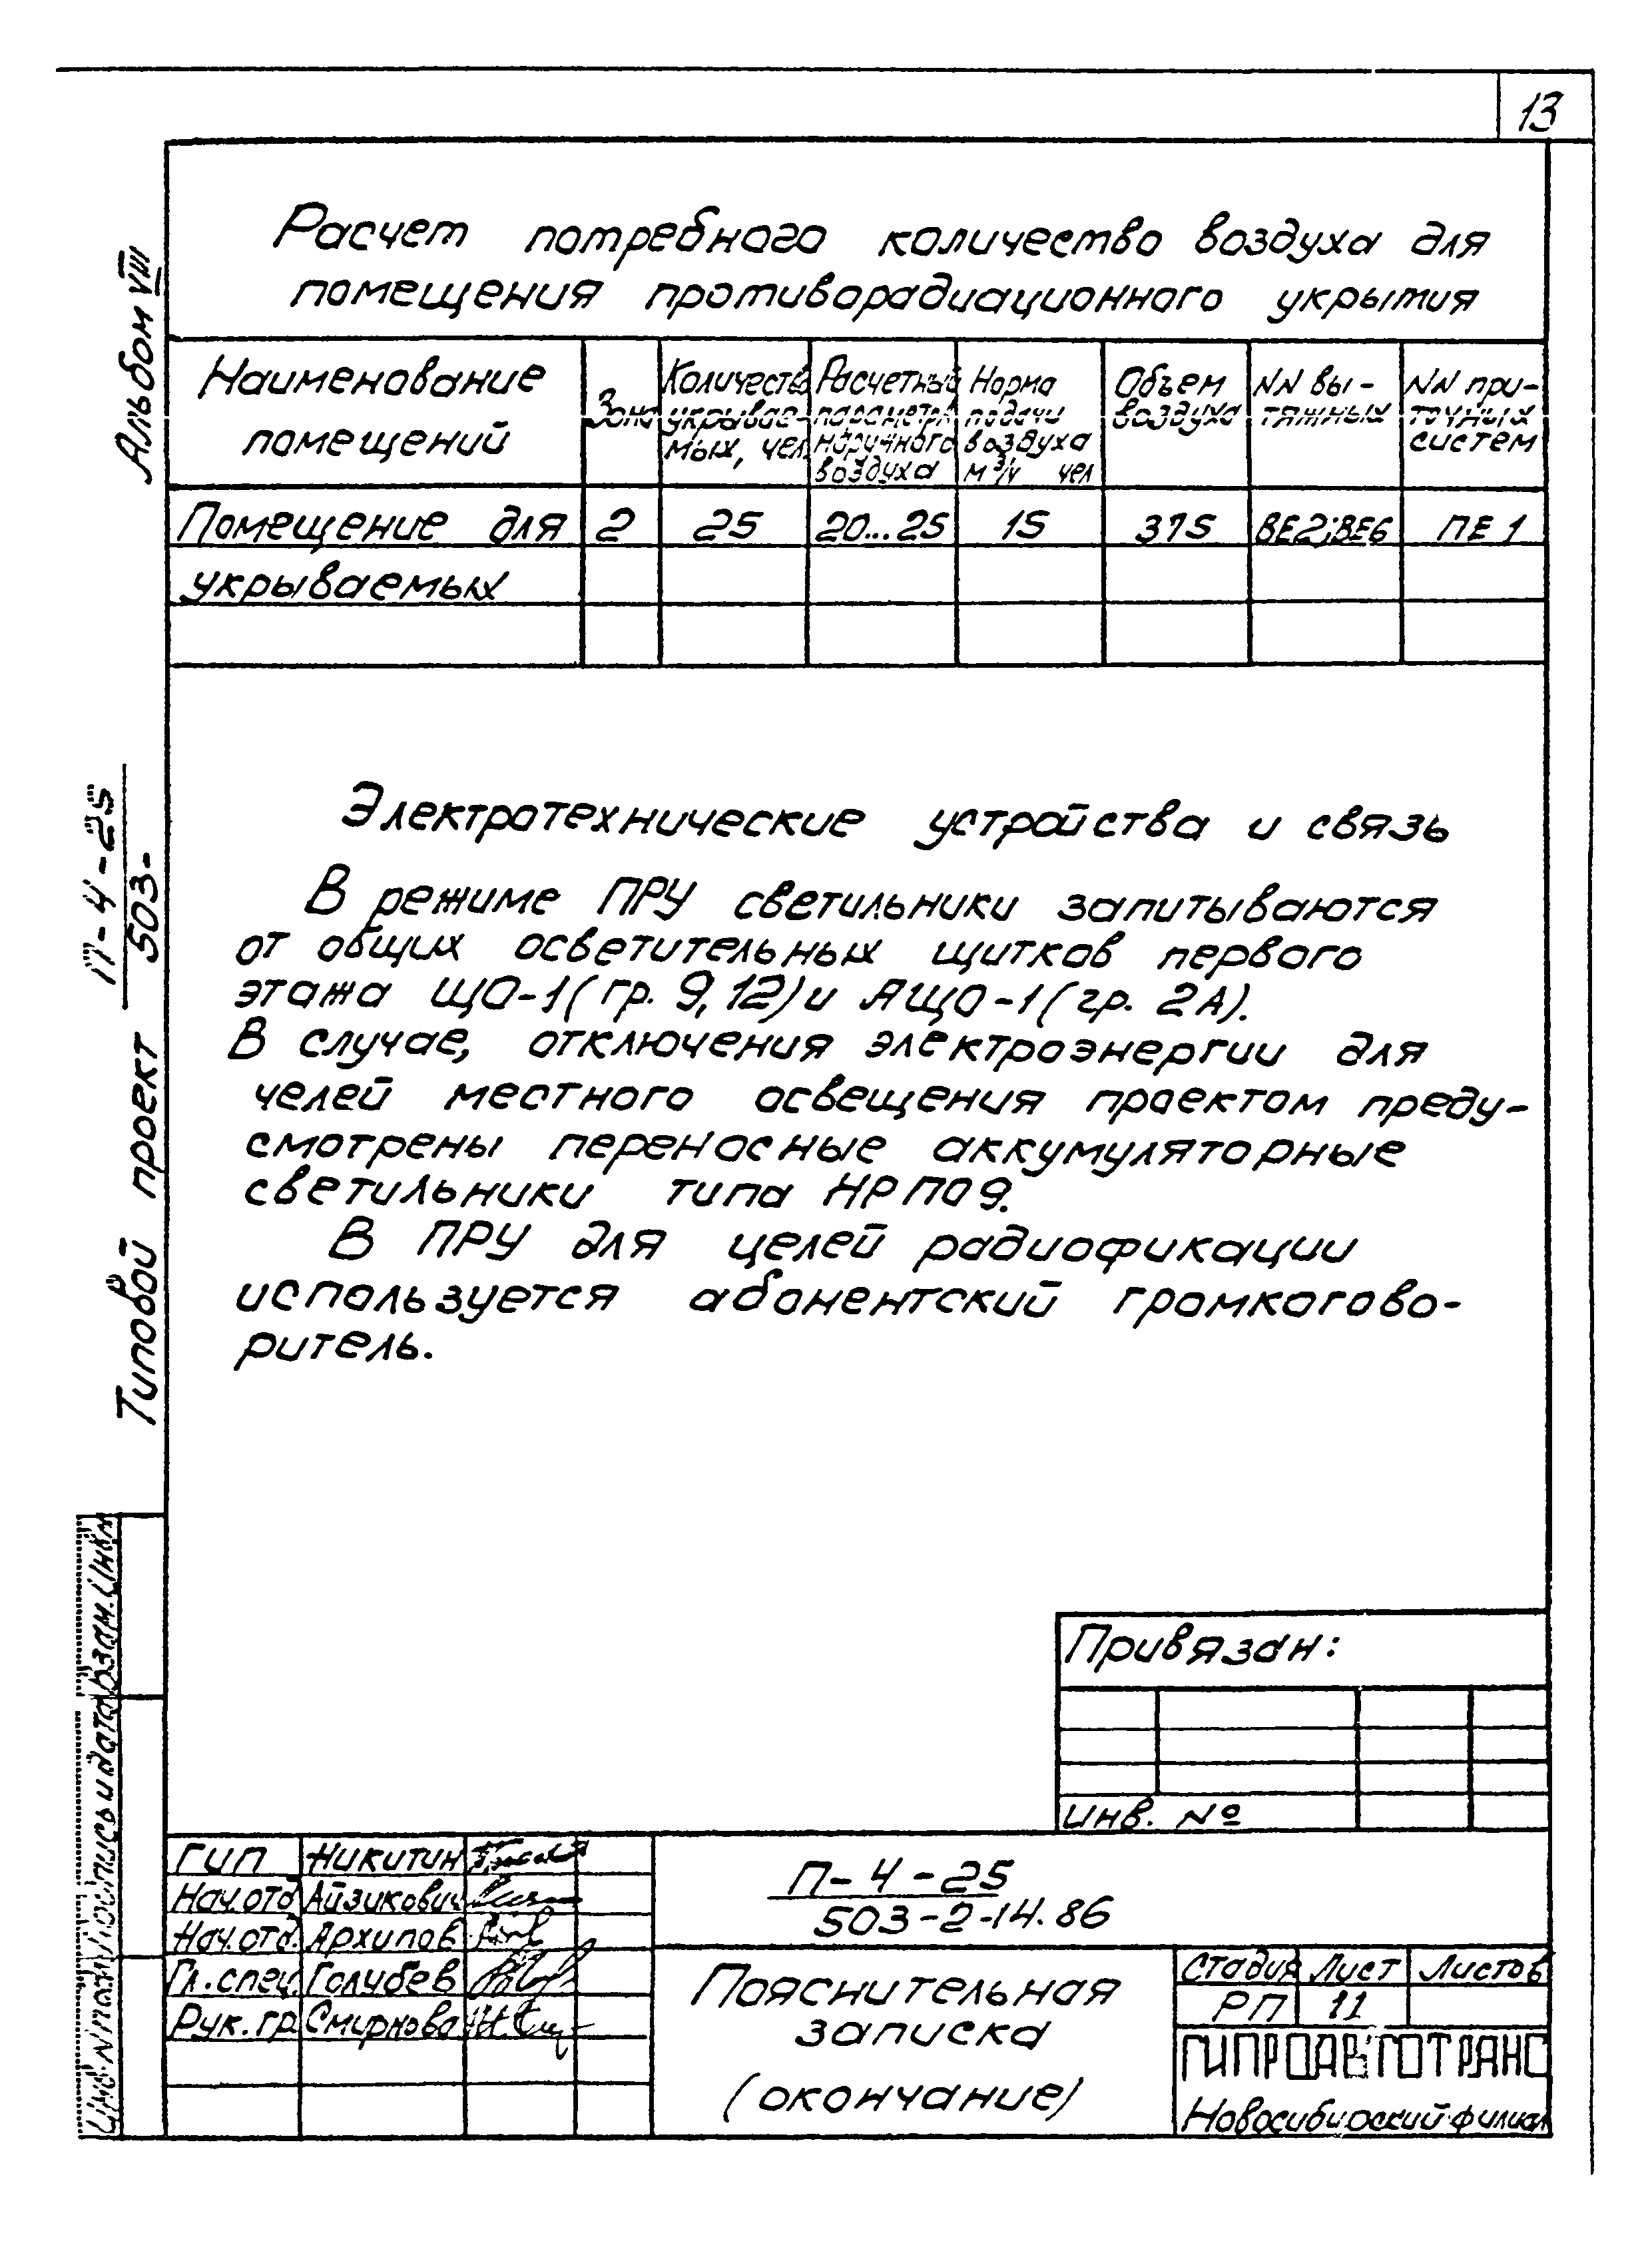 13
Расчет потребного количество воздуха для
помещения противорадиационного укрытия
Альбом VIII
Наименование помещений
Зона
Количество укрывае-
мых, чел.
Расчетный
параметр
наружного
воздуха
Норма
подачи
воздуха
м³/ч чел
Объем
воздуха
NN вы-
тяжных
NN при-
точных
систем
Помещение для 2 25 20...25 15 375 ВЕ2;ВЕ6 ПЕ 1
укрываемых
П-4-25
503-
Типовой проект
Электротехнические устройства и связь
В режиме ПРУ светильники запитываются
от общих осветительных щитков первого
этажа ЩО-1(гр. 9,12) и АЩО-1(гр. 2А).
В случае, отключения электроэнергии для
челей местного освещения проектом преду-
смотрены переносные аккумуляторные
светильники типа НРП09.
В ПРУ для целей радиофикации
используется абонентский громкогово-
ритель.
Привязан:
Инв. №
Инв. N подл. Подпись и дата Взам. Инв. N
ГИП Никитин
Нач.отд Айзикович
Нач.отд. Архипов
Гл.спец. Голубев
Рук.гр Смирнова
П-4-25
503-2-14.86
Пояснительная
записка
(окончание)
Стадия Лист Листов
РП 11
ГИПРОАВТОТРАНС
Новосибирский филиал